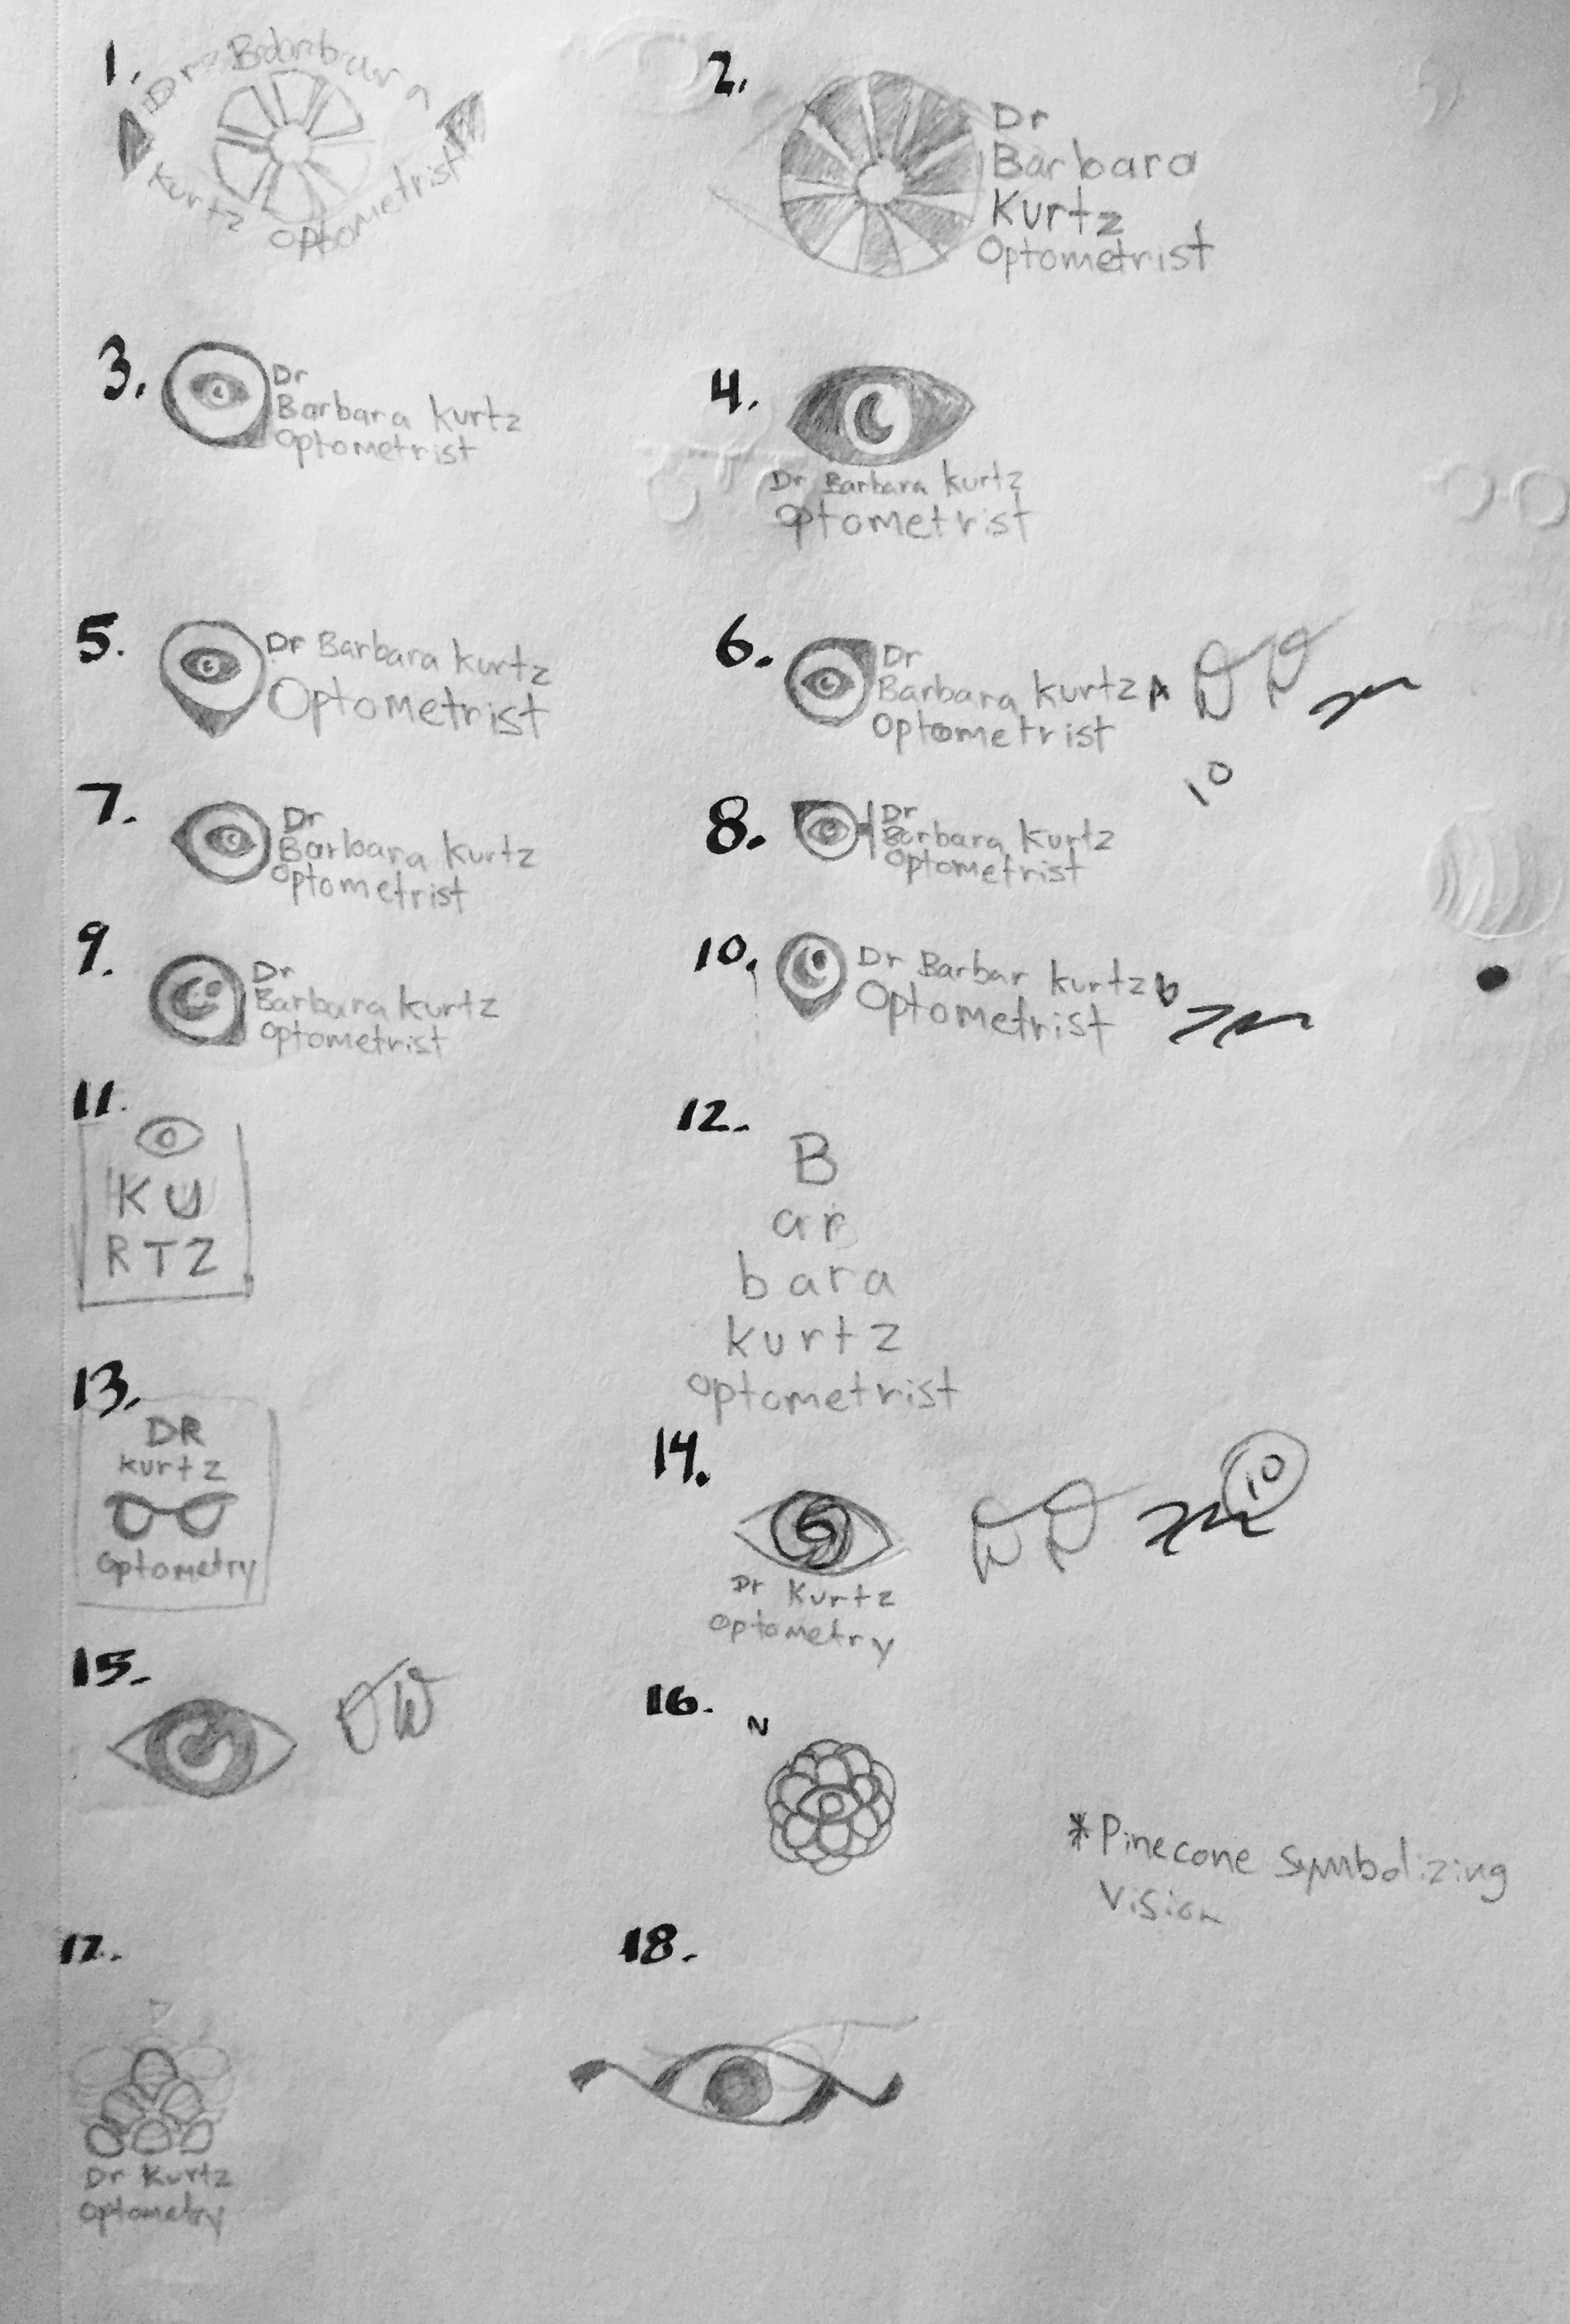 1.
Dr Barbara
Kurtz Optometrist
2.
Dr
Barbara
Kurtz
Optometrist
3.
Dr
Barbara Kurtz
Optometrist
4.
Dr Barbara Kurtz
Optometrist
5.
Dr Barbara Kurtz
Optometrist
6.
Dr
Barbara Kurtz A
Optometrist
10
7.
Dr
Barbara Kurtz
Optometrist
8.
Dr
Barbara Kurtz
Optometrist
9.
Dr
Barbara Kurtz
Optometrist
10.
Dr Barbar Kurtz b
Optometrist
11.
KU
RTZ
12.
B
ar
bara
kurtz
optometrist
13.
DR
kurtz
Optometry
14.
10
Dr Kurtz
Optometry
15.
16.
N
*Pinecone Symbolizing
Vision
17.
Dr Kurtz
Optometry
18.